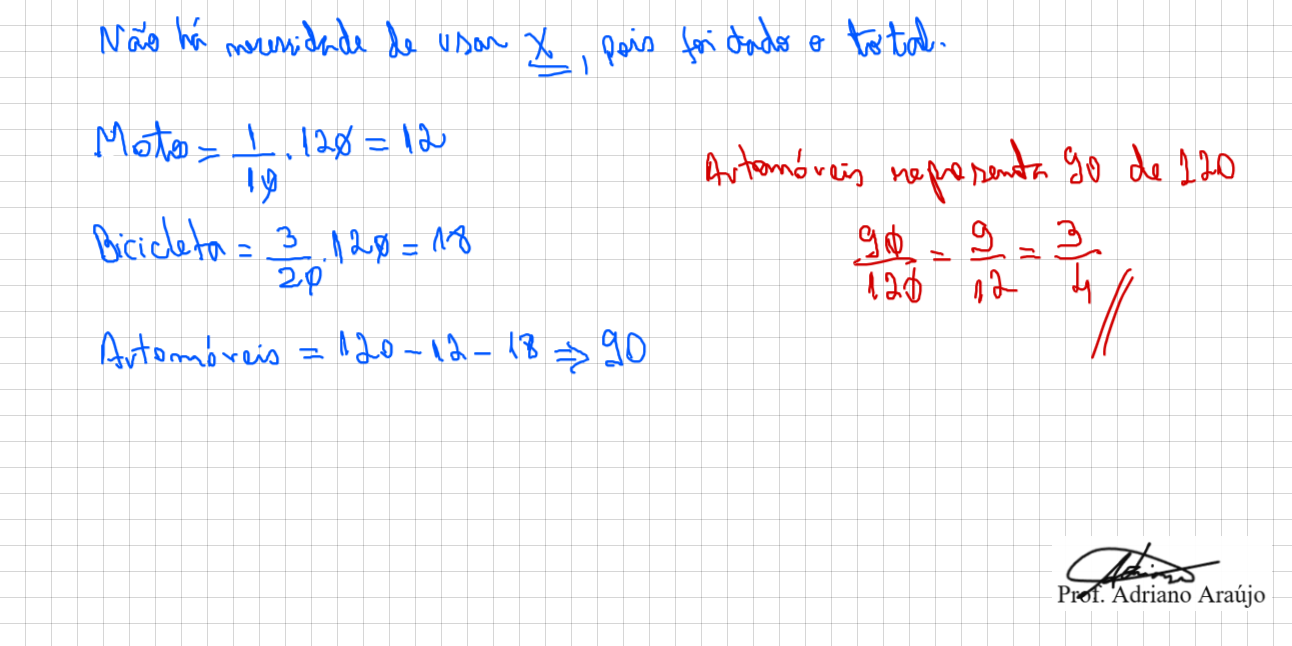 Não há necessidade de usar x, pois foi dado o total.
Moto = 1/10 . 120 = 12
Bicicleta = 3/20 . 120 = 18
Automóveis = 120 - 12 - 18 ⇒ 90
Automóveis representa 90 de 120
90/120 = 9/12 = 3/4 //
Prof. Adriano Araújo